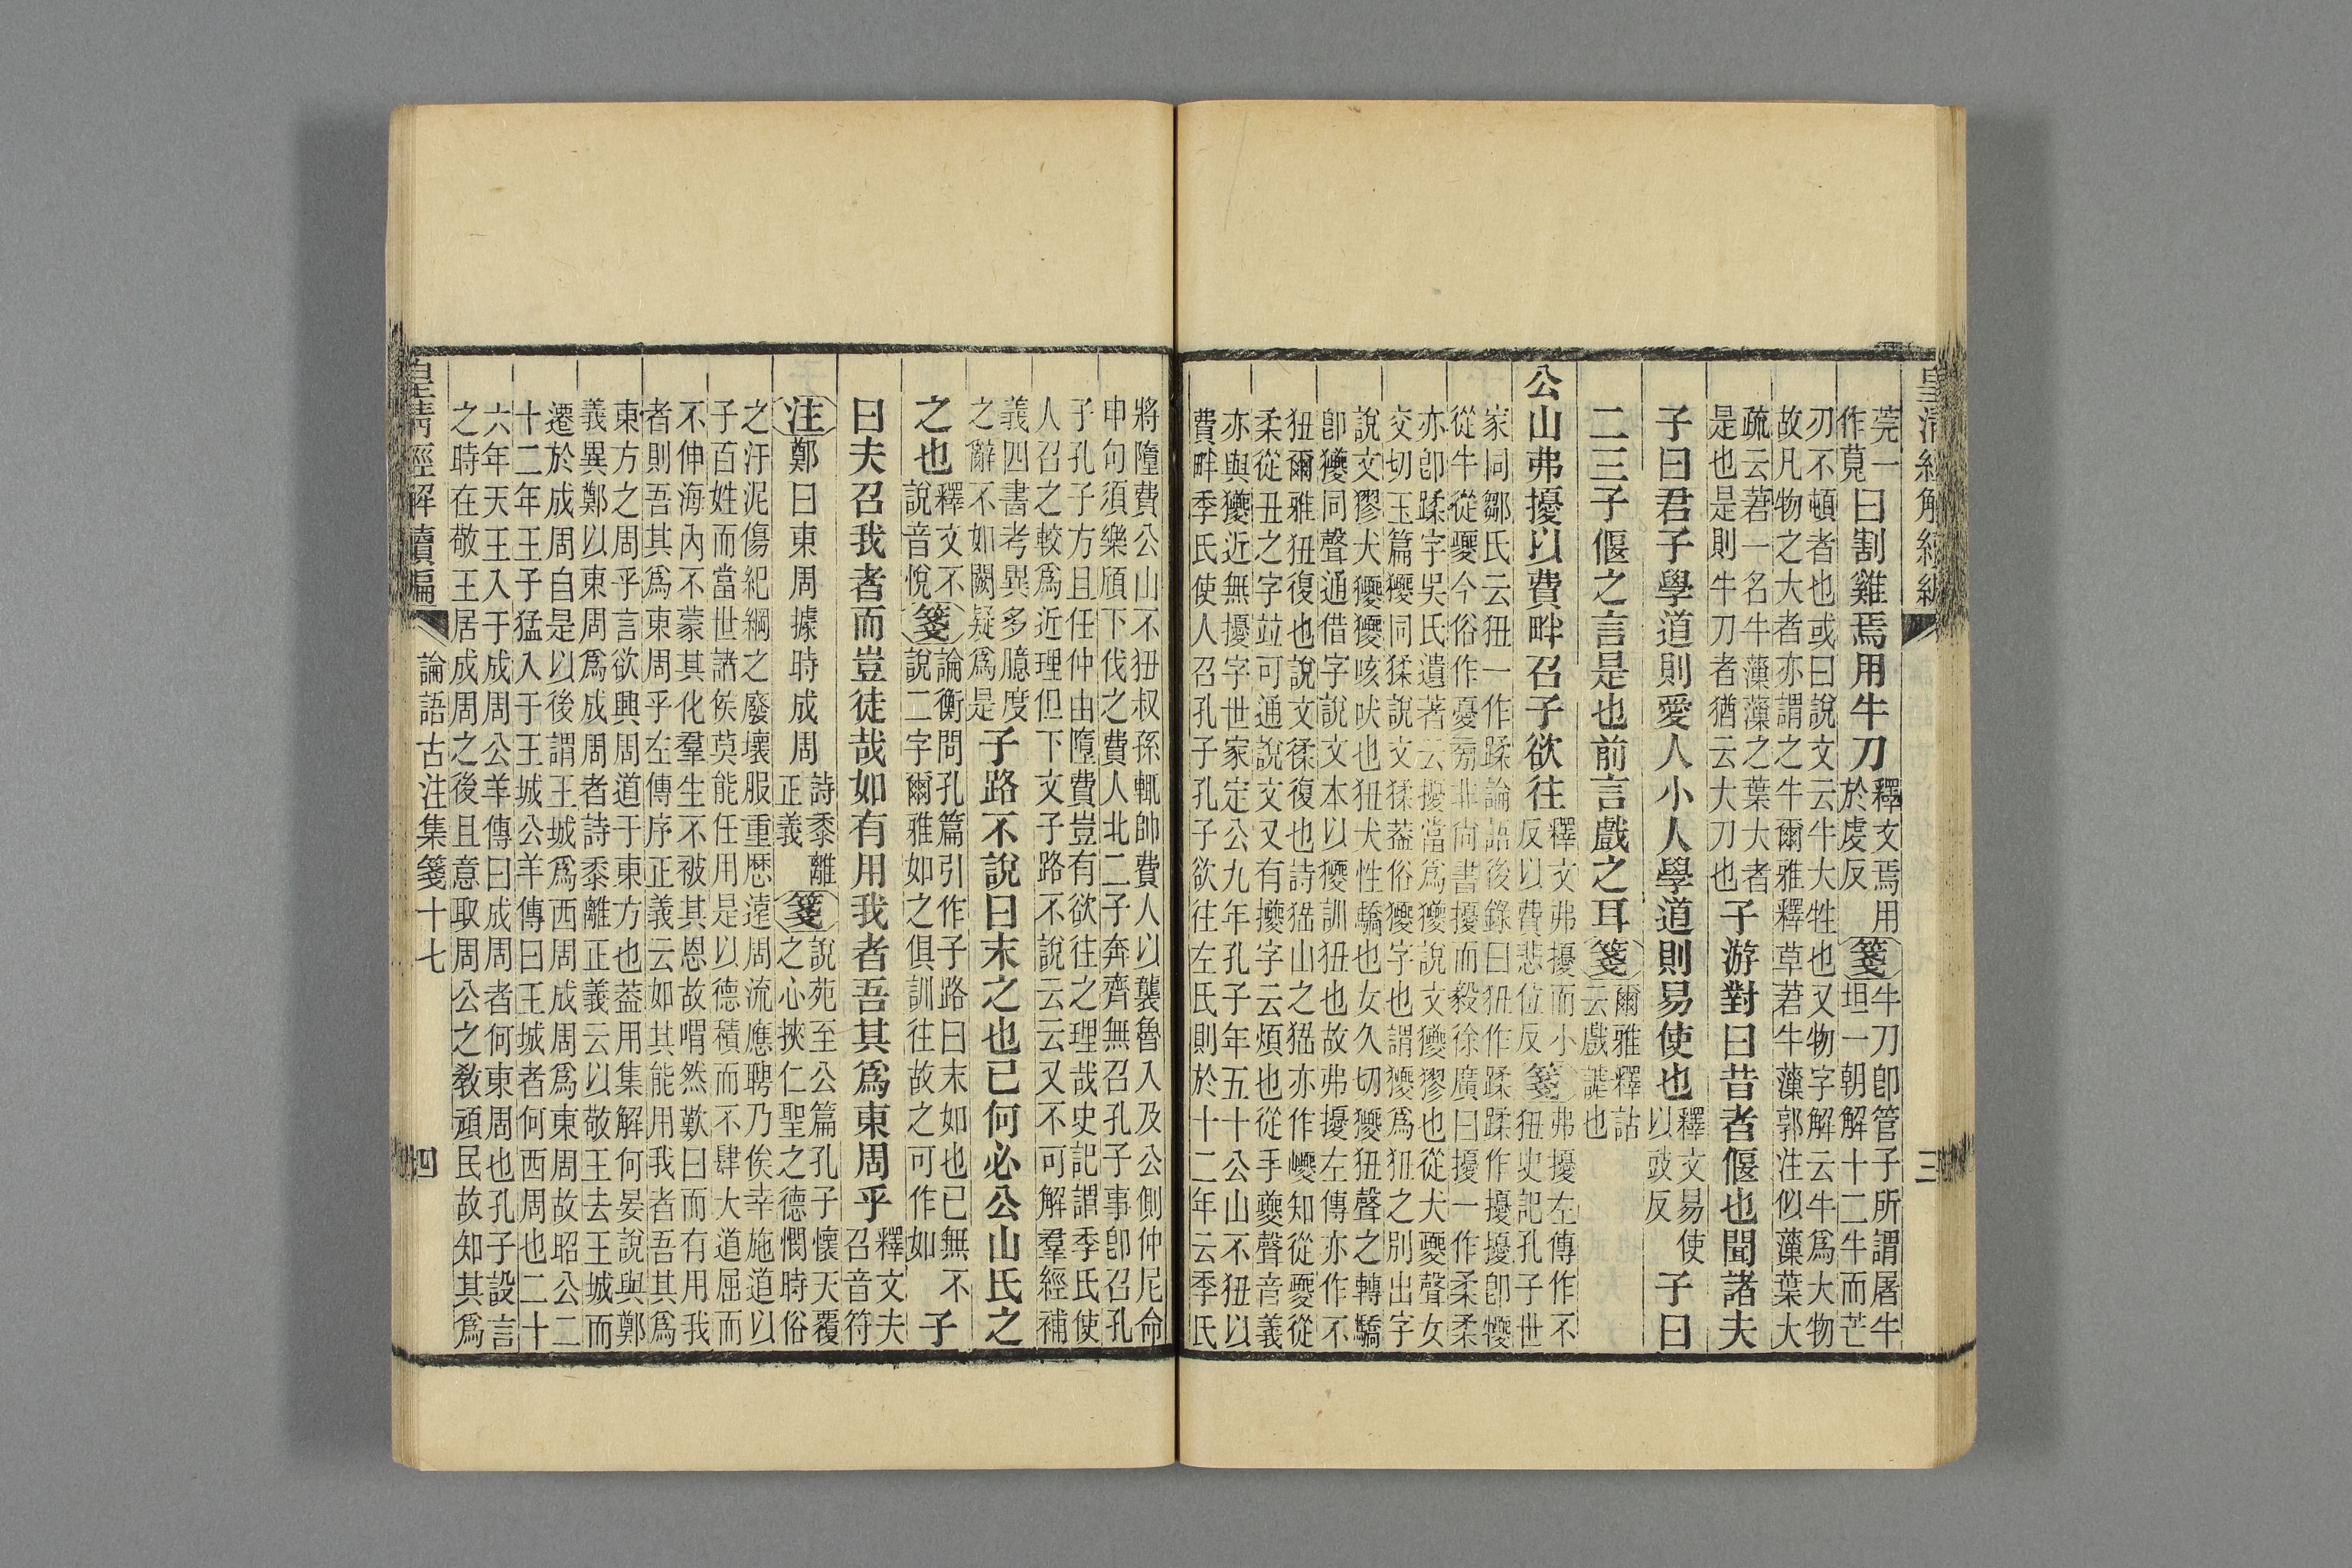 皇清經解續編
三
莞一作莧曰割雞焉用牛刀釋文焉用於虔反箋牛刀卽管子所謂屠牛坦一朝解十二牛而芒
刃不頓者也或曰說文云牛大牲也又物字解云牛爲大物故凡物之大者亦謂之牛爾雅釋草莙牛薻郭注似薻葉大
疏云莙一名牛薻薻之葉大者是也是則牛刀者猶云大刀也子游對曰昔者偃也聞諸夫
子曰君子學道則愛人小人學道則易使也釋文易使以豉反子曰
二三子偃之言是也前言戲之耳箋爾雅釋詁云戲謔也
公山弗擾以費畔召子欲往釋文弗擾而小反以費悲位反箋弗擾左傳作不狃史記孔子世
家同鄒氏云狃一作蹂論語後錄曰狃作蹂蹂作擾擾卽犪從牛從夒今俗作憂芻非尚書擾而毅徐廣曰擾一作柔柔
亦卽蹂字吳氏遺著云擾當爲獿說文獿獶也從犬夒聲女交切玉篇獿同猱說文猱葢俗獿字也謂獿爲狃之別出字
說文獶犬獿獿咳吠也狃犬性驕也女久切獿狃聲之轉驕卽獿同聲通借字說文本以獿訓狃也故弗擾左傳亦作不
狃爾雅狃復也說文猱復也詩猺山之猺亦作巎知從夒從柔從丑之字竝可通說文又有擾字云煩也從手夒聲音義
亦與獿近無擾字世家定公九年孔子年五十公山不狃以費畔季氏使人召孔子孔子欲往左氏則於十二年云季氏
將墮費公山不狃叔孫輒帥費人以襲魯入及公側仲尼命申句須樂頎下伐之費人北二子奔齊無召孔子事卽召孔
子孔子方且任仲由墮費豈有欲往之理哉史記謂季氏使人召之較爲近理但下文子路不說云云又不可解羣經補
義四書考異多臆度之辭不如闕疑爲是子路不說曰末之也已何必公山氏之
之也釋文不說音悅箋論衡問孔篇引作子路曰末如也已無不說二字爾雅如之俱訓往故之可作如子
曰夫召我者而豈徒哉如有用我者吾其爲東周乎釋文夫召音符
注鄭曰東周據時成周詩黍離正義箋說苑至公篇孔子懷天覆之心挾仁聖之德憫時俗
之汙泥傷紀綱之廢壞服重歷遠周流應聘乃俟幸施道以子百姓而當世諸侯莫能任用是以德積而不肆大道屈而
不伸海內不蒙其化羣生不被其恩故喟然歎曰而有用我者則吾其爲東周乎左傳序正義云如其能用我者吾其爲
東方之周乎言欲興周道于東方也葢用集解何晏說與鄭義異鄭以東周爲成周者詩黍離正義云以敬王去王城而
遷於成周自是以後謂王城爲西周成周爲東周故昭公二十二年王子猛入于王城公羊傳曰王城者何西周也二十
六年天王入于成周公羊傳曰成周者何東周也孔子設言之時在敬王居成周之後且意取周公之敎頑民故知其爲
皇清經解續編
論語古注集箋十七
四